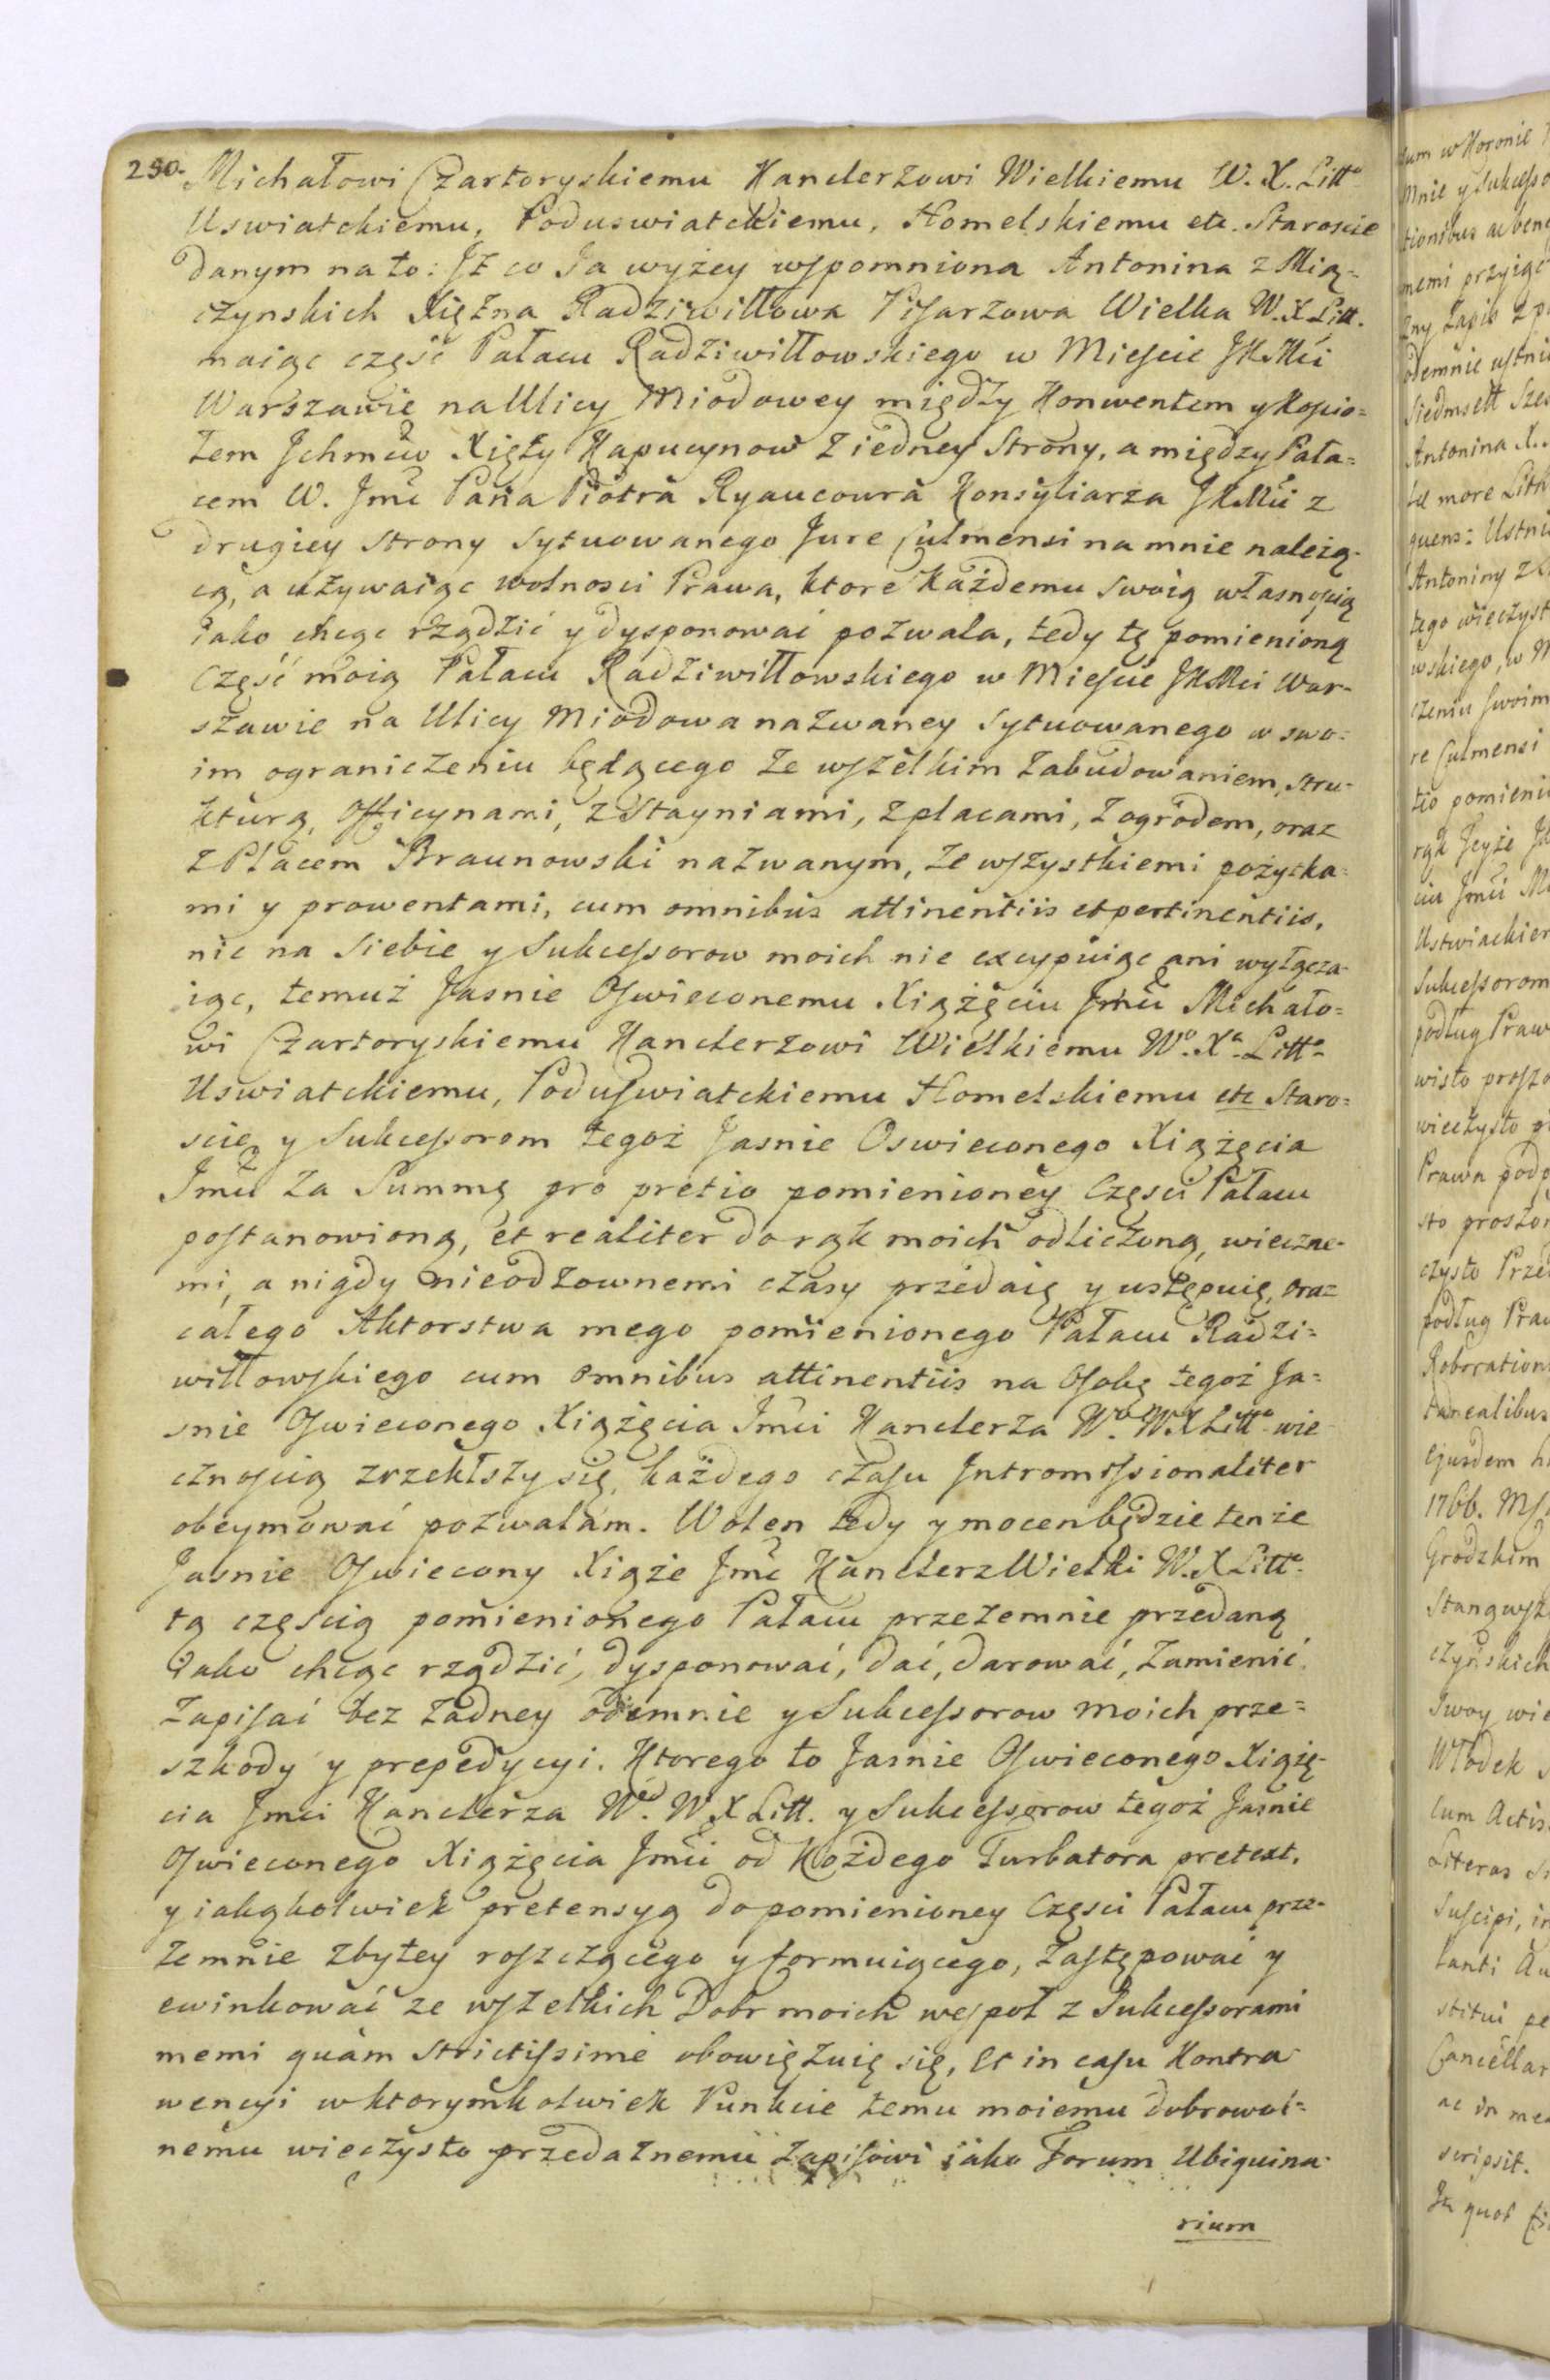 250.
Michałowi Czartoryskiemu Kanclerzowi Wielkiemu W. X. Litt.o
Uswiatckiemu, Poduswiatckiemu, Homelskiemu etc. Staroscie
danym na to: Jż co Ja wyżey wspomniona Antonina z Mią=
czynskich Xiężna Radziwiłłowa Pisarzowa Wielka W. X Litt.
maiąc część Pałacu Radziwiłłowskiego w Mieście JKMći
Warszawie na Ulicy Miodowey między Konwentem y Kościo=
łem Jchmćiw Xięży Kapucynow z iedney Strony, a między Pała=
cem W. Jmć Pana Piotra Ryaucoura Konsyliarza JKMći z
drugiey strony sytuowanego Jure Culmensi na mnie należą=
cą, a używaiąc wolnosci Prawa, ktore każdemu swoią własnoscią
iako chcąc rządzić y dysponować pozwala, tedy tę pomienioną
Część moią Pałacu Radziwiłłowskiego w Mieście JKMci War-
szawie na Ulicy Miodowa nazwaney sytuowanego w swo=
im ograniczeniu będącego ze wszelkim zabudowaniem, stru-
kturą, Officynami, z Stayniami, z placami, z ogrodem, oraz
z Placem Braunowski nazwanym, ze wszystkiemi pożytka=
mi y prowentami, cum omnibus attinentiis et pertinentiis,
nic na Siebie y Sukcessorow moich nie excypuiąc ani wyłącza-
iąc, temuż Jasnie Oswieconemu Xiążęciu Jmći Michało=
wi Czartoryskiemu Kanclerzowi Wielkiemu Wo. Xa. Litto.
Uswiatckiemu, Poduswiatckiemu Homelskiemu etc Staro=
scie y Sukcessorom tegoż Jasnie Oswieconego Xiążęcia
Jmći za Summę pro pretio pomienioney Części Pałacu
postanowioną, et realiter do rąk moich odliczoną, wieczne-
mi, a nigdy nieodzownemi czasy przedaię y ustępuię, oraz
całego Aktorstwa mego pomienionego Pałacu Radzi=
wiłłowskiego cum omnibus attinentiis na Osobę tegoż Ja=
snie Oswieconego Xiążęcia Jmći Kanclerza Wgo. W. X Litto. wie
cznością zrzekłszy się, każdego czasu Jntromissionaliter
obeymować pozwalam. Wolen tedy y mocen będzie tenże
Jasnie Oswiecony Xiąże Jmć Kanclerz Wielki W. X Litto.
tą częścią pomienionego Pałacu przezemnie przedaną
iako chcąc rządzić, dysponować, dać, darować, zamienić
zapisać bez żadney odemnie y Sukcessorow moich prze=
szkody y prepedycyi. Ktorego to Jasnie Oswieconego Xiążę-
cia Jmći Kanclerza Wgo. W X Litt. y Sukcessorow tegoż Jasnie
Oswieconego Xiążęcia Jmći od każdego Turbatora pretext,
y iakąkolwiek pretensyą do pomienioney Części Pałacu prze-
zemnie zbytey roszczącego y formuiącego, zastępować y
ewinkować ze wszelkich Dobr moich wespoł z Sukcessorami
memi quàm strictissime obowięzuię się, et in casu Kontra
wencyi w ktorymkolwiek Punkcie temu moiemu dobrowol=
nemu wieczysto przedażnemu zapisowi iako Forum Ubiquina-
rium